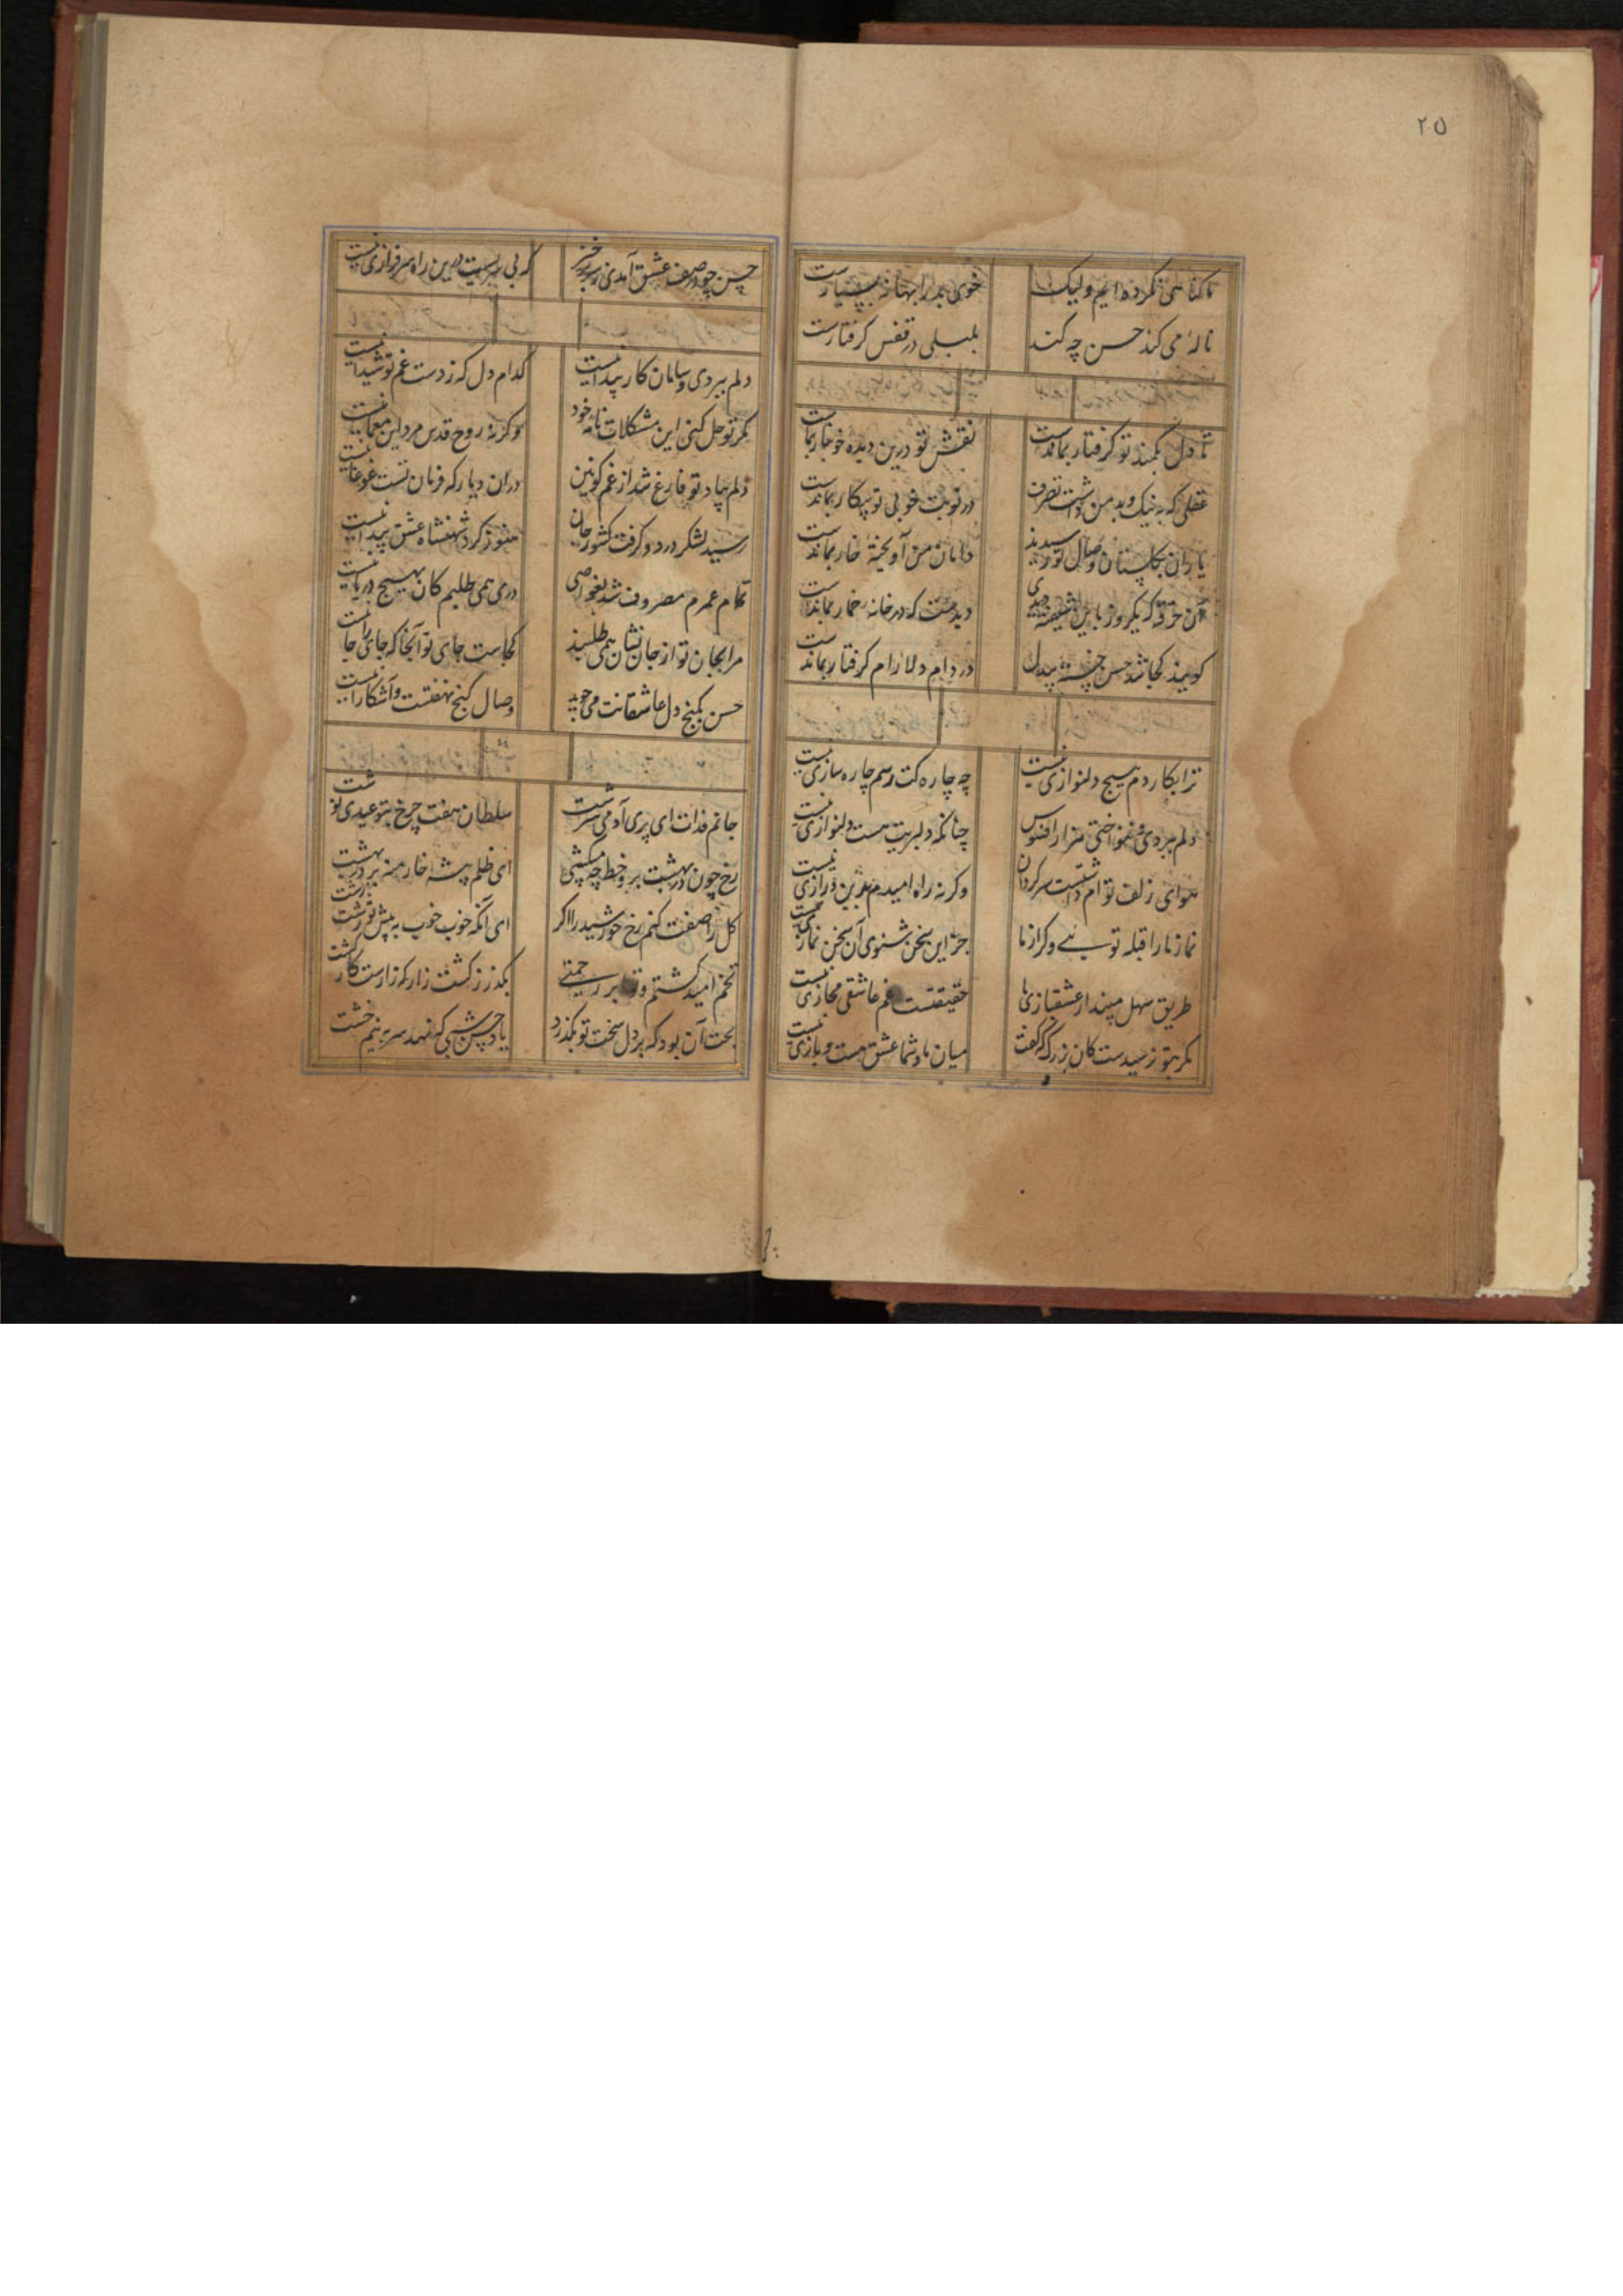 ۲۵
ما گناهی نکرده ایم ولیک خوی بد را بهانه بسیارست
ناله می کند حسن چه کند بلبلی در قفس گرفتارست
تا دل بکمند تو گرفتار بماندست نقش تو درین دیده خونبار بماندست
عقلی که به نیک و بد من داشت تصرف در نوبت خوبی تو بیکار بماندست
یاران بگلستان وصال تو رسیدند دامان من آویختهٔ خار بماندست
آن خرقه که یکروز باین شیفته دیدی دیرست که در خانه خمار بماندست
گویند کجا شد حسن خستهٔ بیدل در دام دلارام گرفتار بماندست
ترا بکار دم هیچ دلنوازی نیست چه چاره کت رسم چاره سازی نیست
دلم ببردی و ننواختی هزار افسوس چنانکه دلبریت هست دلنوازی نیست
هوای زلف توام داشتست سرگردان وگرنه راه امیدم بدین درازی نیست
نماز ما را قبله تو بسی وگر از ما جز این سخن شنوی آن سخن نمازی نیست
طریق سهل مپندار عشقبازی ما حقیقتست غم عاشقی مجازی نیست
مگر بتو نرسیدست کان بزرگ گفت میان ما و شما عشق هست و بازی نیست
حسن چو در صف عشق آمدی ز سر برخیز که بی سریست درین راه سرفرازی نیست
دلم ببردی و سامان کار پیدا نیست کدام دل که ز دست غم تو شیدا نیست
مگر تو حل کنی این مشکلات نامه خود وگرنه روح قدس مرد این معما نیست
دلم بیاد تو فارغ شد از غم کونین در ان دیار که فرمان تست غوغا نیست
رسید لشکر درد و گرفت کشور جان هنوز گرد شهنشاه عشق پیدا نیست
تمام عمرم مصروف شد بغواصی دری همی طلبم کان بهیچ دریا نیست
مرا بجان تو از جان نشان همی طلبند کجاست جای تو آنجا که جای جا راست
حسن بکنج دل عاشقانت می جوید وصال گنج نهفتست و آشکارا نیست
جانم فدات ای پری آدمی سرشت سلطان هفت چرخ بتو عیدی نوشت
رخ چون در بهشت برو خط چه میکشی ای ظلم پیشه خار منه بر در بهشت
گل را صفت کنم رخ خورشید را اگر ای آنکه خوب خوب به پیش تو زشت زشت
تخم امید کشتم و تو ابر رحمتی بگذر ز کشت زار که زارست کار کشت
بخت آن بود که بر دل سخت تو بگذرد یاد حسن شبی که نهد سر به نیم خشت